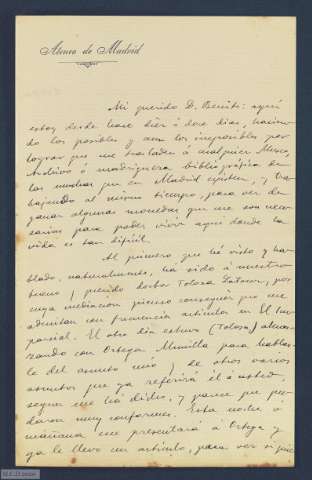 Ateneo de Madrid
Mi querido D. Benito: aquí
estoy desde hace diez ó doce días, hacien-
do los posibles y aun los imposibles por
lograr que me trasladen á cualquier Museo,
Archivo ó madriguera bibliográfica de
las muchas que en Madrid existen, y tra-
bajando al mismo tiempo, para ver de
ganar algunas monedas que me son nece-
sarias para poder vivir aquí donde la
vida es tan difícil.
Al primero que hé visto y ha-
blado, naturalmente, ha sido á nuestro
bueno y querido doctor Tolosa Latour, por
cuya mediacion pienso conseguir que me
admitan con frecuencia artículos en El Im-
parcial. El otro día estuvo (Tolosa) almor-
zando con Ortega Munilla para hablar-
le del asunto mío y de otros varios
asuntos que ya referirá él á usted,
segun me há dicho, y parece que que-
daron muy conformes. Esta noche ó
mañana me presentará á Ortega y
ya le llevo un artículo, para ver si